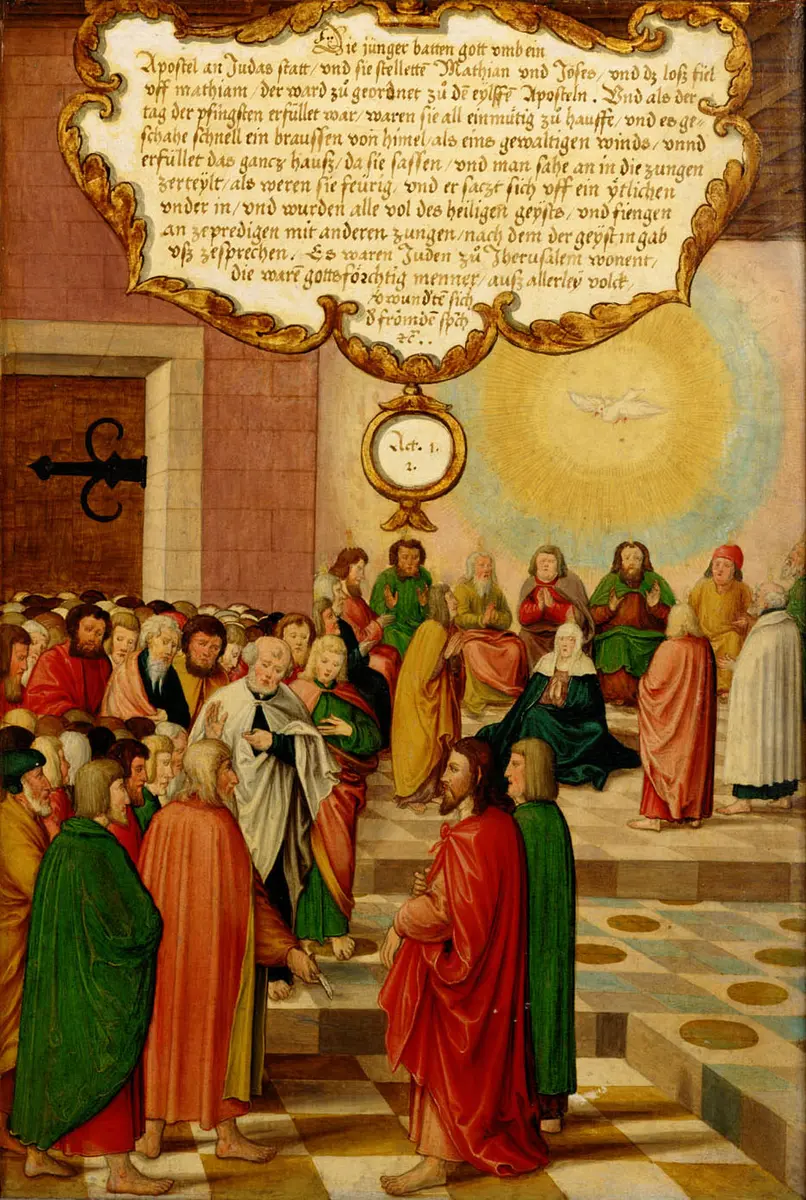 Die jünger batten gott vmb ein
Apostel an Judas statt / vnd sie stelletē Mathian vnd Joses / vnd dz loß fiel
vff mathiam / der ward zů geordnet zů dē eylffē Aposteln . Vnd als der
tag der pfingsten erfüllet war / waren sie all einmütig zů hauffē / vnd es ge⸗
schahe schnell ein braussen von himel / als eins gewaltigen winds / vnnd
erfüllet das gancz hausz / da sie sassen / vnd man sahe an in die zungen
zerteylt / als weren sie feürig / vnd er saczt sich vff ein ÿtlichen
vnder in / vnd wurden alle vol des heiligen geÿsts / vnd fiengen
an zepredigen mit anderen zungen / nach dem der geÿst in gab
vsz zesprechen . Es waren Juden zů Jherusalem wonent /
die warē gottsförchtig menner / ausz allerleÿ volck /
v̄wundtē sich
d̄ frömdē sp̄ch
ꝛc̄ . .
Act . 1 .
2 .